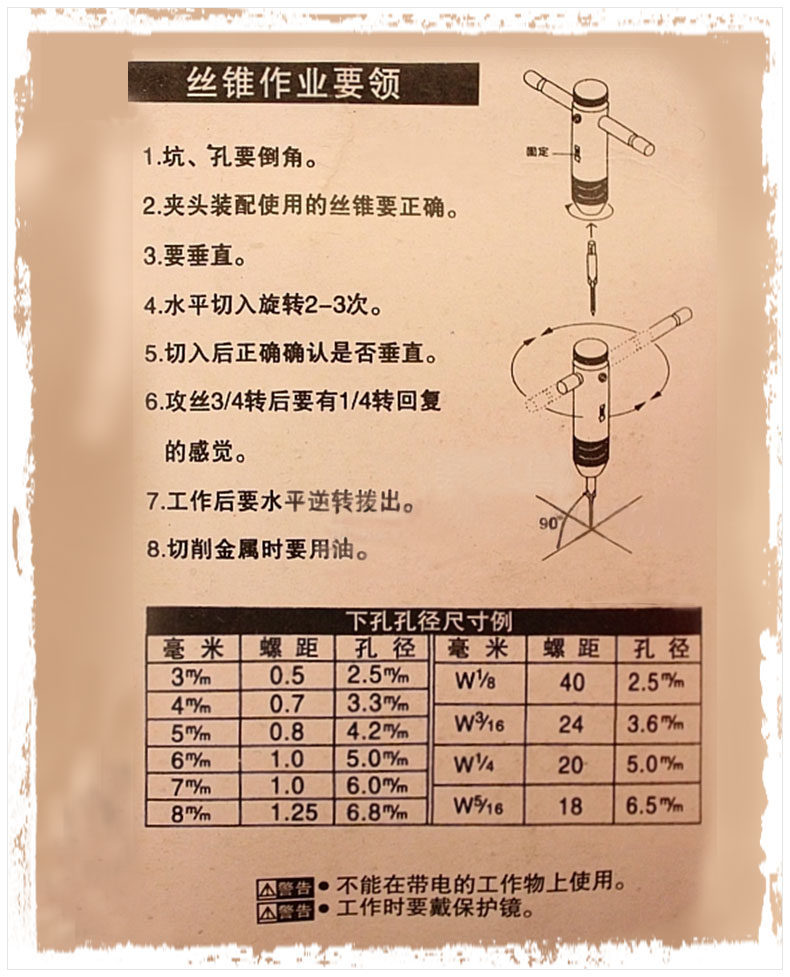 丝锥作业要领
1.坑、孔要倒角。
2.夹头装配使用的丝锥要正确。
3.要垂直。
4.水平切入旋转2-3次。
5.切入后正确确认是否垂直。
6.攻丝3/4转后要有1/4转回复
的感觉。
7.工作后要水平逆转拨出。
8.切削金属时要用油。
固定
90°
下孔孔径尺寸例
毫米 螺距 孔径 毫米 螺距 孔径
3m/m 0.5 2.5m/m W1/8 40 2.5m/m
4m/m 0.7 3.3m/m W3/16 24 3.6m/m
5m/m 0.8 4.2m/m
6m/m 1.0 5.0m/m W1/4 20 5.0m/m
7m/m 1.0 6.0m/m
8m/m 1.25 6.8m/m W5/16 18 6.5m/m
警告 • 不能在带电的工作物上使用。
警告 • 工作时要戴保护镜。